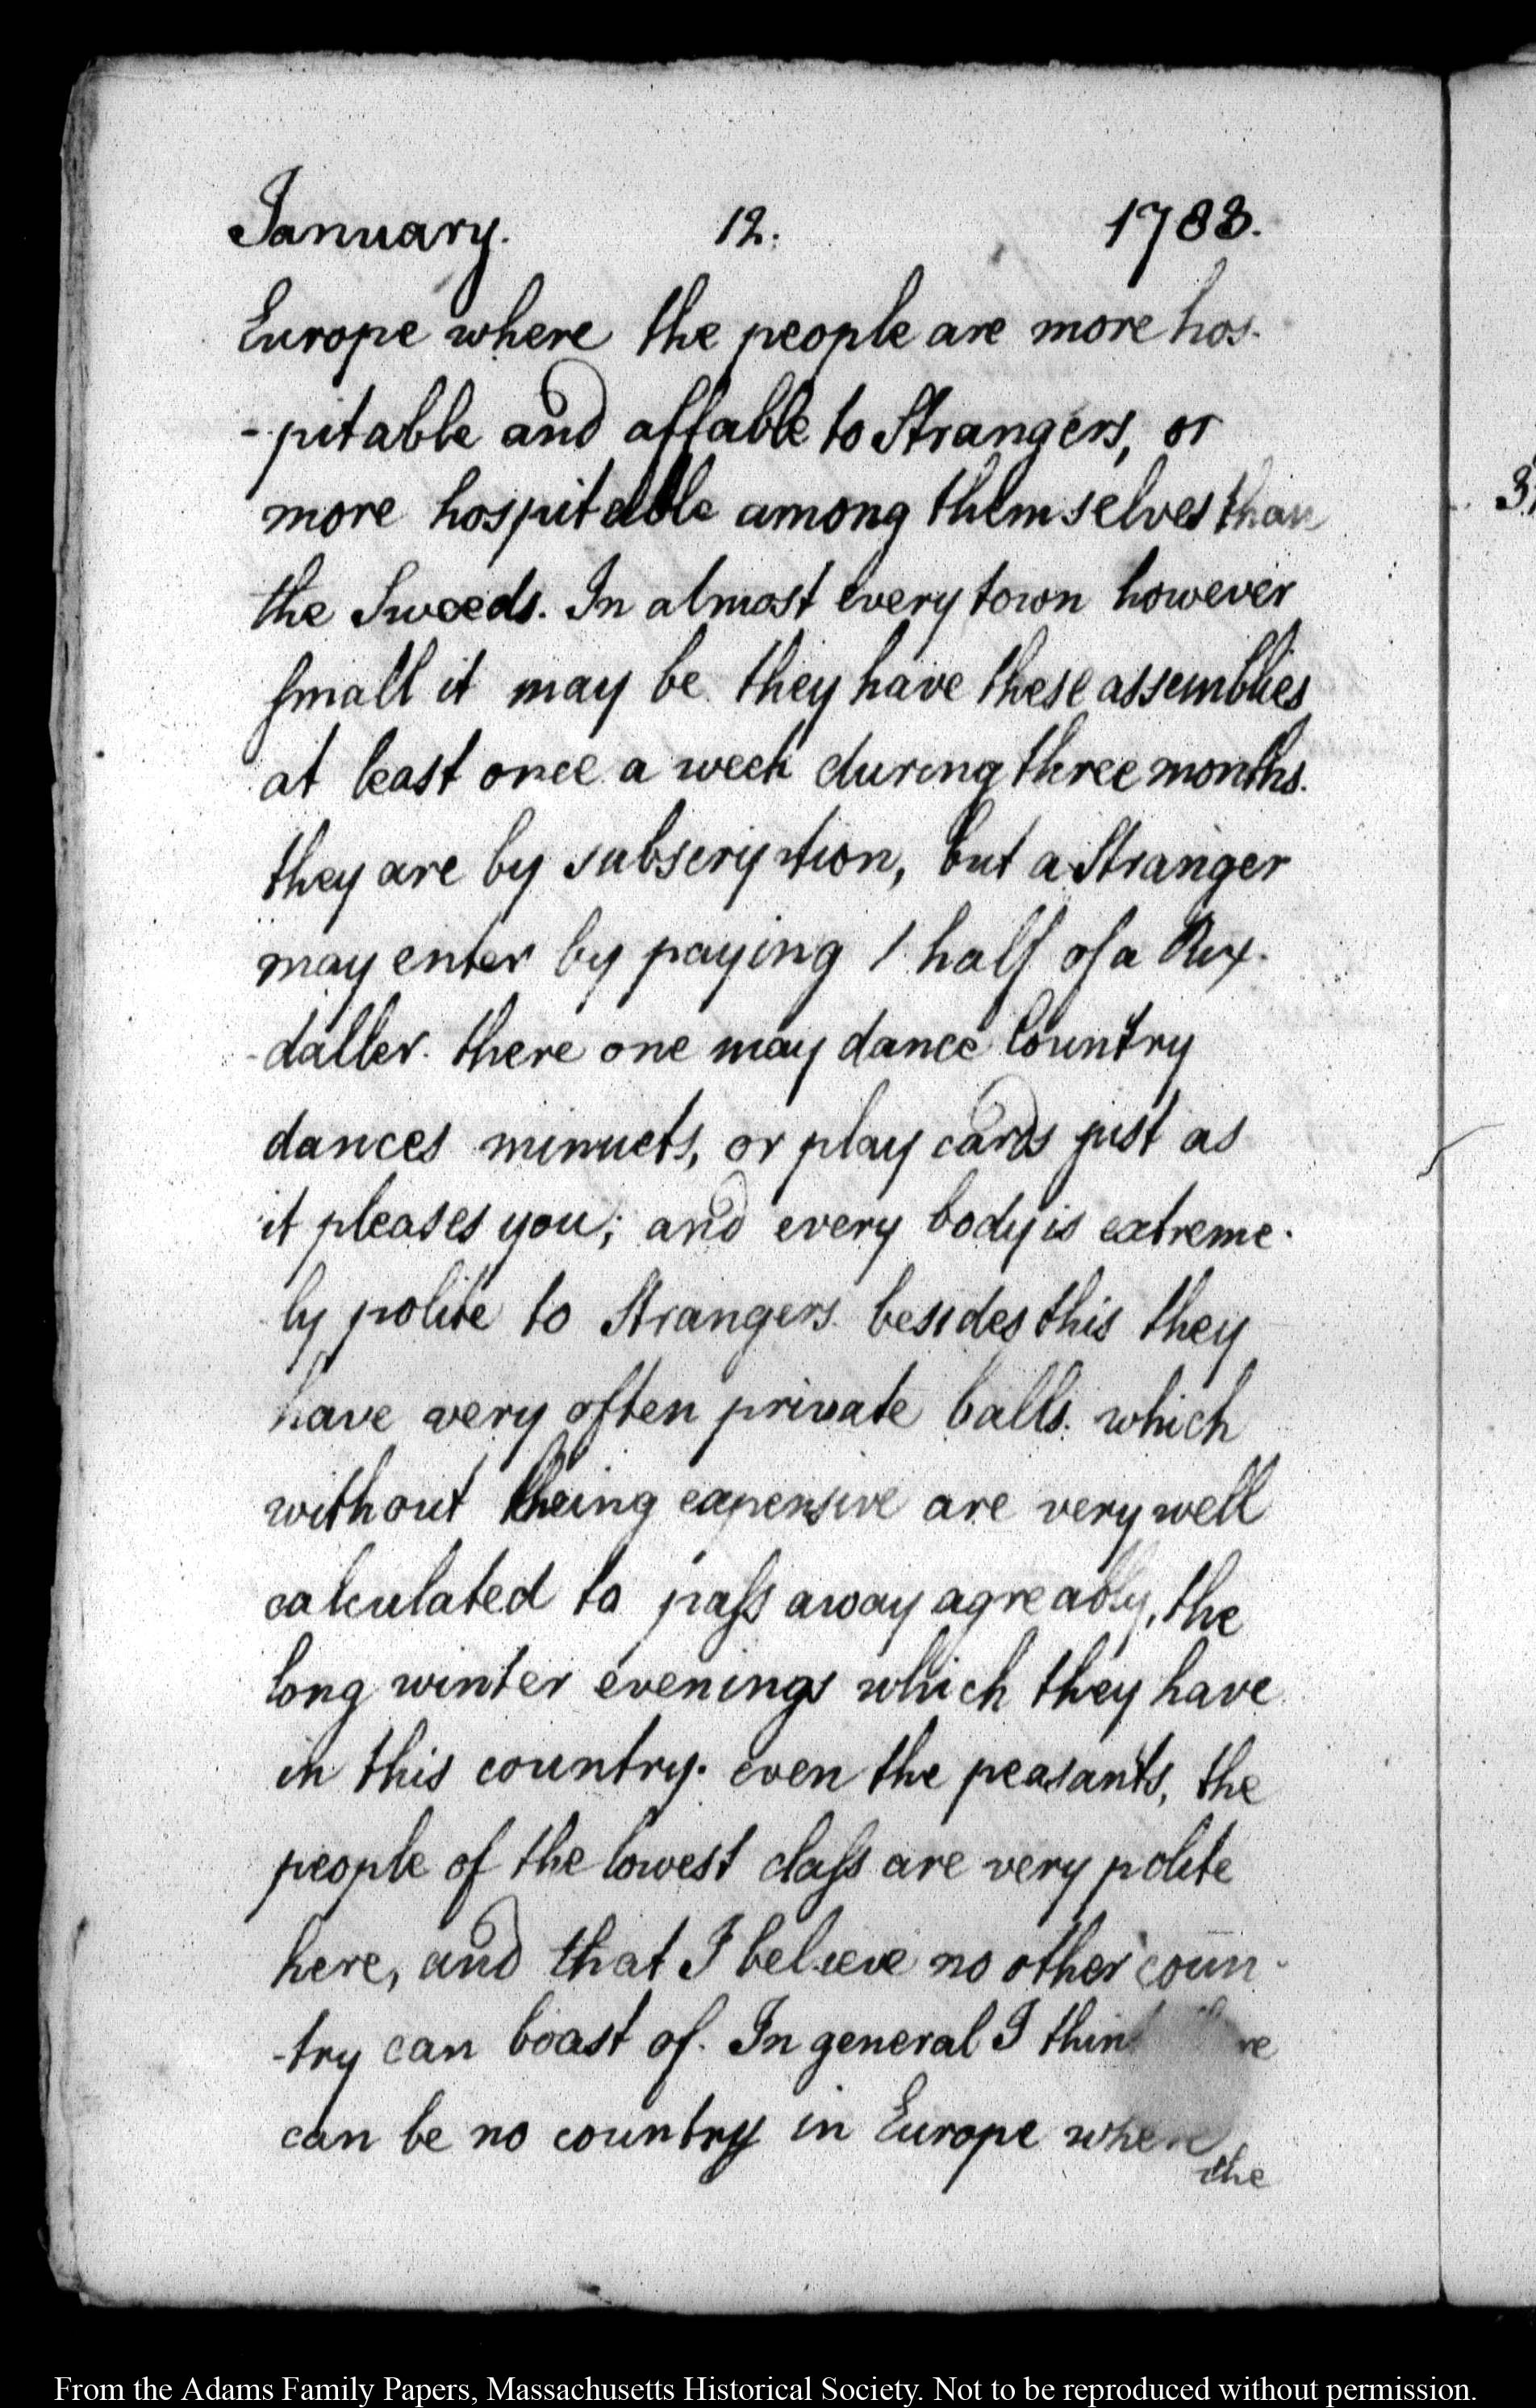 January. 12. 1783.
Europe where the people are more hos-
-pitable and affable to Strangers, or
more hospitable among themselves than
the Sweeds. In almost every town however
small it may be they have these assemblies
at least once a week during three months.
they are by subscription, but a Stranger
may enter by paying 1 half of a Rix-
-daller. there one may dance Country
dances minuets, or play cards just as
it pleases you; and every body is extreme-
ly polite to Strangers. besides this they
have very often private balls. which
without being expensive are very well
calculated to pass away agreably, the
long winter evenings which they have
in this country. even the peasants, the
people of the lowest class are very polite
here, and that I believe no other coun-
-try can boast of. In general I think
can be no country in Europe where
the
From the Adams Family Papers, Massachusetts Historical Society. Not to be reproduced without permission.